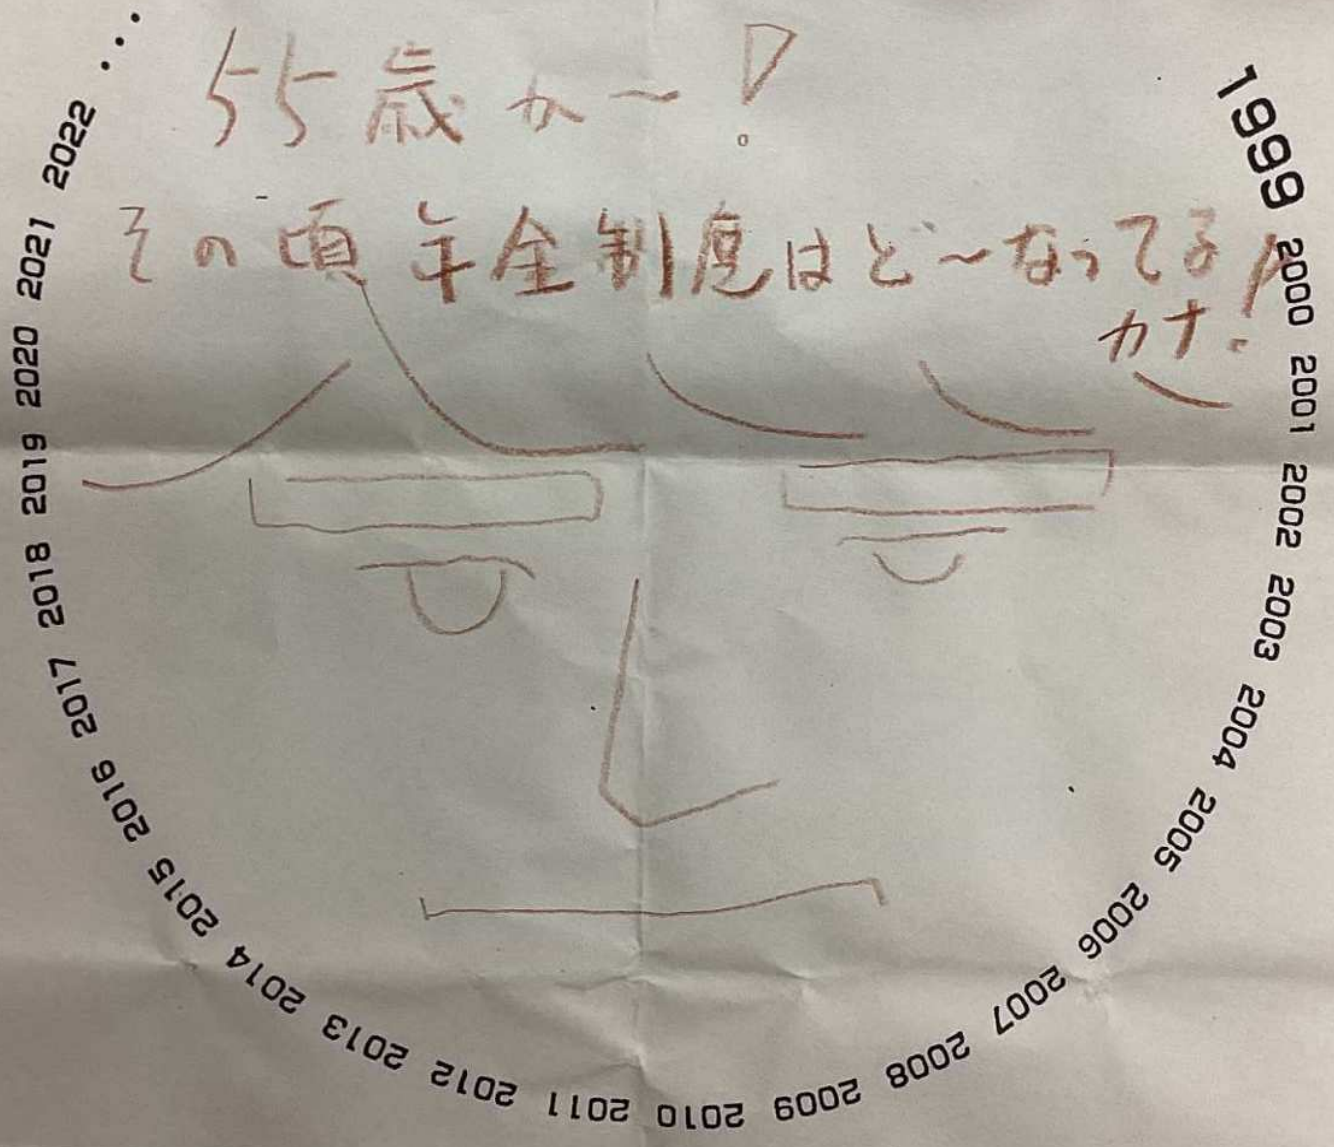 55歳か〜!
その頃年金制度はど〜なってる
カナ!
1999 2000 2001 2002 2003 2004 2005 2006 2007 2008 2009 2010 2011 2012 2013 2014 2015 2016 2017 2018 2019 2020 2021 2022 ...